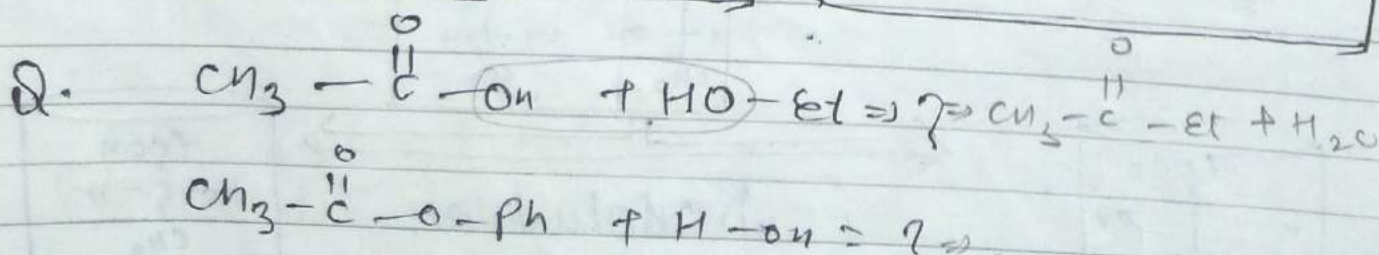 O O
Q. CH3 - C - OH + HO - Et ⇒ ? ⇒ CH3 - C - Et + H2O
O
CH3 - C - O - Ph + H - OH = ? ⇒